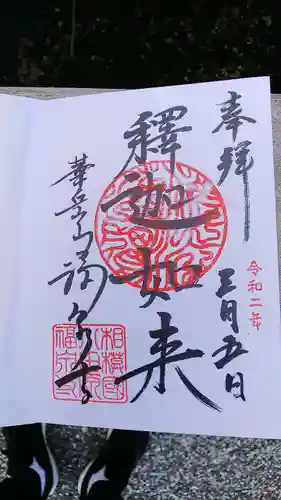 奉拝
令和二年
三月五日
釋迦如来
華岳山
福泉寺
相模國
福泉寺